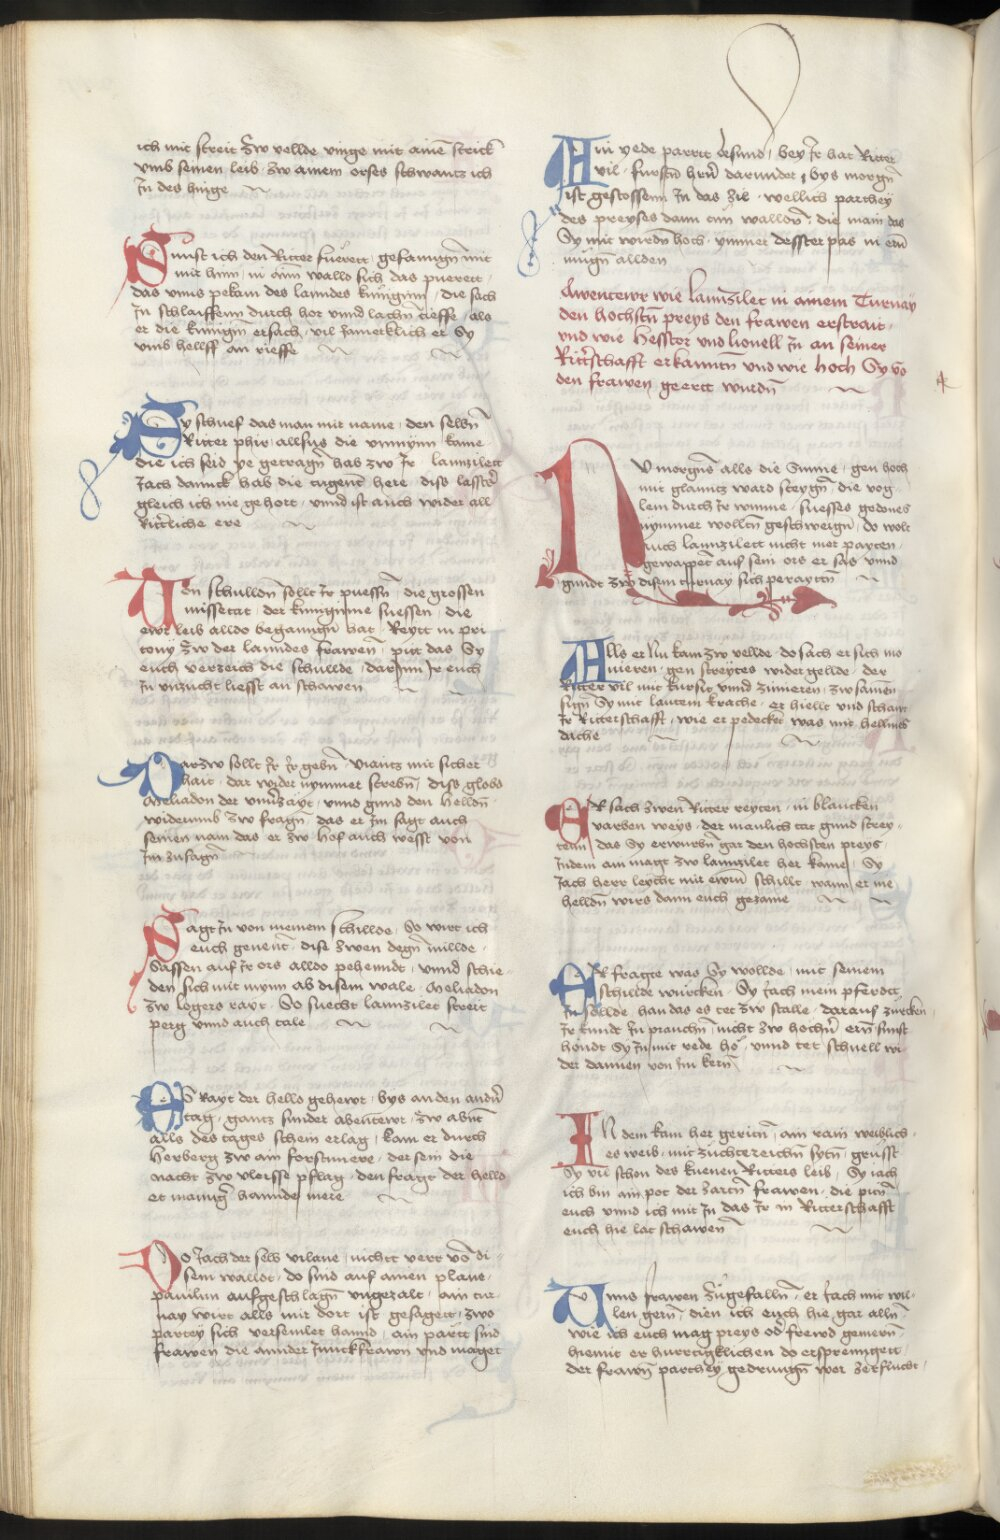 ich mit streit zw vellde vinge mit ainē strick
vmb seinen leib zw ainem orses schwantz ich
Jn des hienge
Sunst ich den Ritter fuerett gefanngn̄ mit
mit hinn in ainn̄ wallo sich das puerett
das vnns pekam des lanndes kunigīnn die sach
Jn schlaiffenn durch hor vnnd lachn̄ tieffe als
er die kunigin ersach vil Jamerklich er Sy
vmb hellff an rieffe
Sy schuef das man mir name den selbn̄
Ritter phir allsus die vnnynn kame
die ich seid ye getragn̄ hab zw Jr lannzilett
Jach dannck hab die tugent here diss lesster
gleich ich nie gehort vnnd ist auch wider all
Ritterliche ere
Den schulldn̄ sollt Jr puessn̄ die grossen
missetat der kunnginne suessen die
ewr leib alldo beganngn̄ hat Reytt in pri
tony zw der lanndes frawen pitt das Sy
euch verzeich die schullde darinn Jr euch
Jn vnzucht liesst an schawen
Darzw sollt Jr Jr gebn̄ vianntz mit sicher
hait dar wider nymmer strebn̄ diss globd
Meliadon der vnuerzayt vnnd gund den helldn̄
widerumb zw fragn̄ das er Jm sagt auch
seinen nam das er zw hof auch wesst von
Jm zusagn̄
Sagt Jn von meinem schillde So wirt ich
euch genent dise zwen degn̄ millde
Sassen auf Jr ors alldo pehenndt vnnd schie
den sich mit mynn ab disem wale Meliadon
zw logers rayt So suecht lannzilet streit
perg vnnd auch tale
Es Rayt der helld gehewr bys an den andn̄
tag gantz sunder abentewr zw abnt
alls des tages schein erlag kam er durch
herberg zw ain forstinere der sein die
nacht zw vleisse pflag den fragt der helld
er manigr̄ hannde mere
Do Jach der selb vilane nichtt verr vō di
sem walldt do sind auf ainen plane
pauilun aufgeschlagn̄ vngezalt ain tur
nay wirt alls mir dort ist gesagett zwo
partey sich versemlet hannd ain partt sind
frawen die annder Junckfrawn vnd maget
Ain yede partt besund bey Jr hat Ritter
vil furstn̄ hrn̄ darunder bys morgn̄
ist gestossenn Jn das zil wellich parthey
des preyses dann ein walldn̄ die main das
Sy mit wirdn̄ hoch ymmer desster pas in ern̄
mugn̄ allden
Awentewr wie lannzilet in ainem Turnay
den hochstn̄ preys den frawen erstrait
vnd wie hesstor vnd lionell Jn an seiner
Ritterschafft erkanntn̄ vnd wie hoch Sy vō
den frawen geertt wurdn̄
NV morgens alls die Sunne gen hoch
mit glanntz ward steygn̄ die vog
lein durch Jr wunne suesses gedones
nymmer wolltn̄ geschweign̄ do wolt
auch lannzilett nicht mer payten
gewappet auf sein ors er sas vnnd
gundt zw disem turnay sich peraytn̄
Alls er Nu kam zw vellde do sach er sich mo
nuieren gen streytes widergellde der
Ritter vil mit kursit vnnd zimieren zwsamen
sign̄ Sy mit lautem krache er hiellt vnd schaut
Jr Ritterschafft wie er pedecket was mit hellmes
dache
Er sach zwen̄ Ritter reyten in blancken
varben weys der manlich tat gund strey
tenn das Sy erwurbn̄ gar den hochsten preys
Jndem ain magt zw lannzilet her kame Sy
Jach herr leycht mir ewrn̄ schillt wann er me
helldn̄ wirs dann euch gezame
Er fragte was Sy wollde mit seinem
schillde wurcken Sy Jach mein pferdtt
Jn sollde han das es tet zw stalle darauf zurcken
Jr kundt Jn prauchn̄ nicht zw hochn̄ ern̄ sunst
hondt Sy Jn mit rede ho vnnd tet schnell wi
der dannen von Jm kern̄
In dem kam her geritn̄ ain rain weiblich
es weib mit zuchtereichn̄ sytn̄ grusst
Sy vil schon des kuenen Ritters leib Sy iach
ich bin ain pot der zartn̄ frawen die pitn̄
euch vnnd ich mit Jn das Jr in Ritterschafft
euch hie lat schawen
Vnns frawen zugefalln̄ er Jach mit wil
len gern̄ dien ich euch hie gar alln̄
wie ich euch mag preys od' frewd gemern̄
hiemit er hurtigklichen do ersprenngett
der frawn̄ parthey gedrungn̄ wer zerflucht